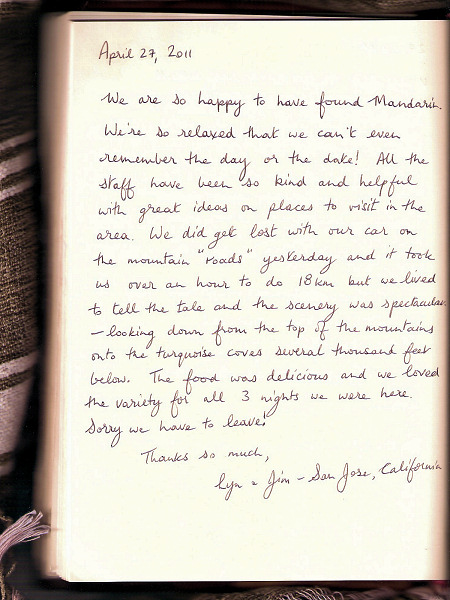 April 27, 2011
We are so happy to have found Mandarin.
We're so relaxed that we can't even
remember the day or the date! All the
staff have been so kind and helpful
with great ideas on places to visit in the
area. We did get lost with our car on
the mountain "roads" yesterday and it took
us over an hour to do 18km but we lived
to tell the tale and the scenery was spectacular
– looking down from the top of the mountains
onto the turquoise coves several thousand feet
below. The food was delicious and we loved
the variety for all 3 nights we were here.
Sorry we have to leave!
Thanks so much,
Lyn & Jim – San Jose, California